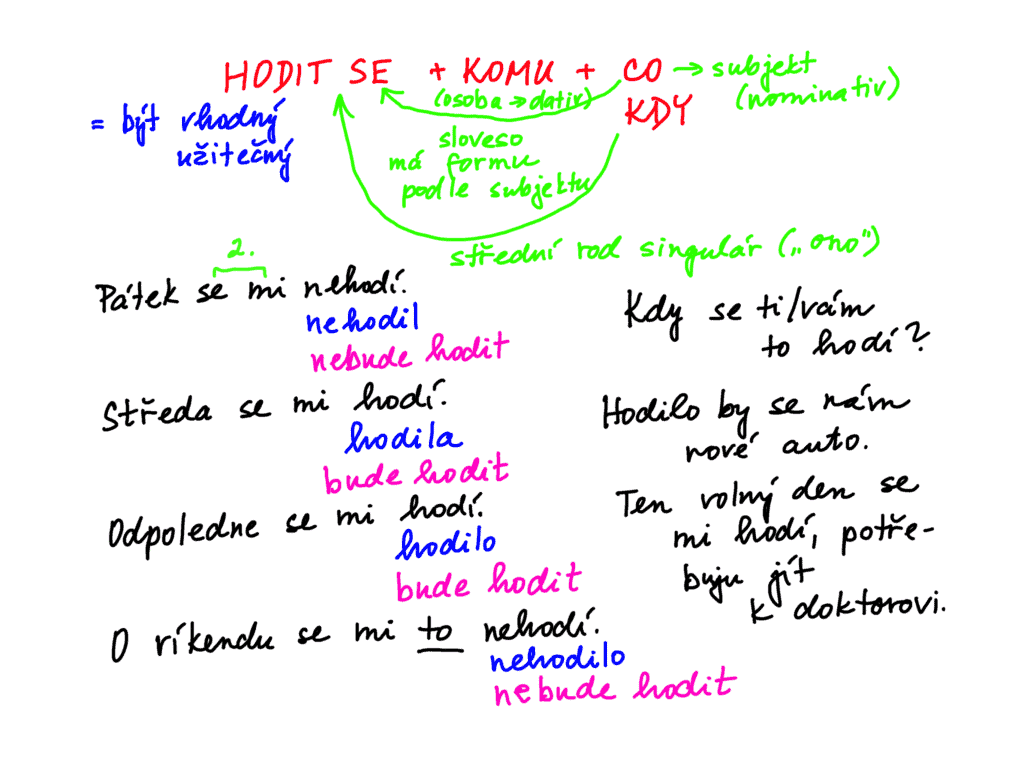 HODIT SE + KOMU + CO → subjekt
(osoba → dativ) (nominativ)
KDY
= být vhodný
užitečný
sloveso
má formu
podle subjektu
střední rod singulár („ono")
2.
Pátek se mi nehodí.
nehodil
nebude hodit
Středa se mi hodí.
hodila
bude hodit
Odpoledne se mi hodí.
hodilo
bude hodit
O víkendu se mi to nehodí.
nehodilo
nebude hodit
Kdy se ti/vám
to hodí?
Hodilo by se nám
nové auto.
Ten volný den se
mi hodí, potře-
buju jít
k doktorovi.